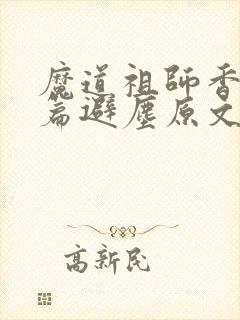 魔道祖師香
篇避塵原文
高新民